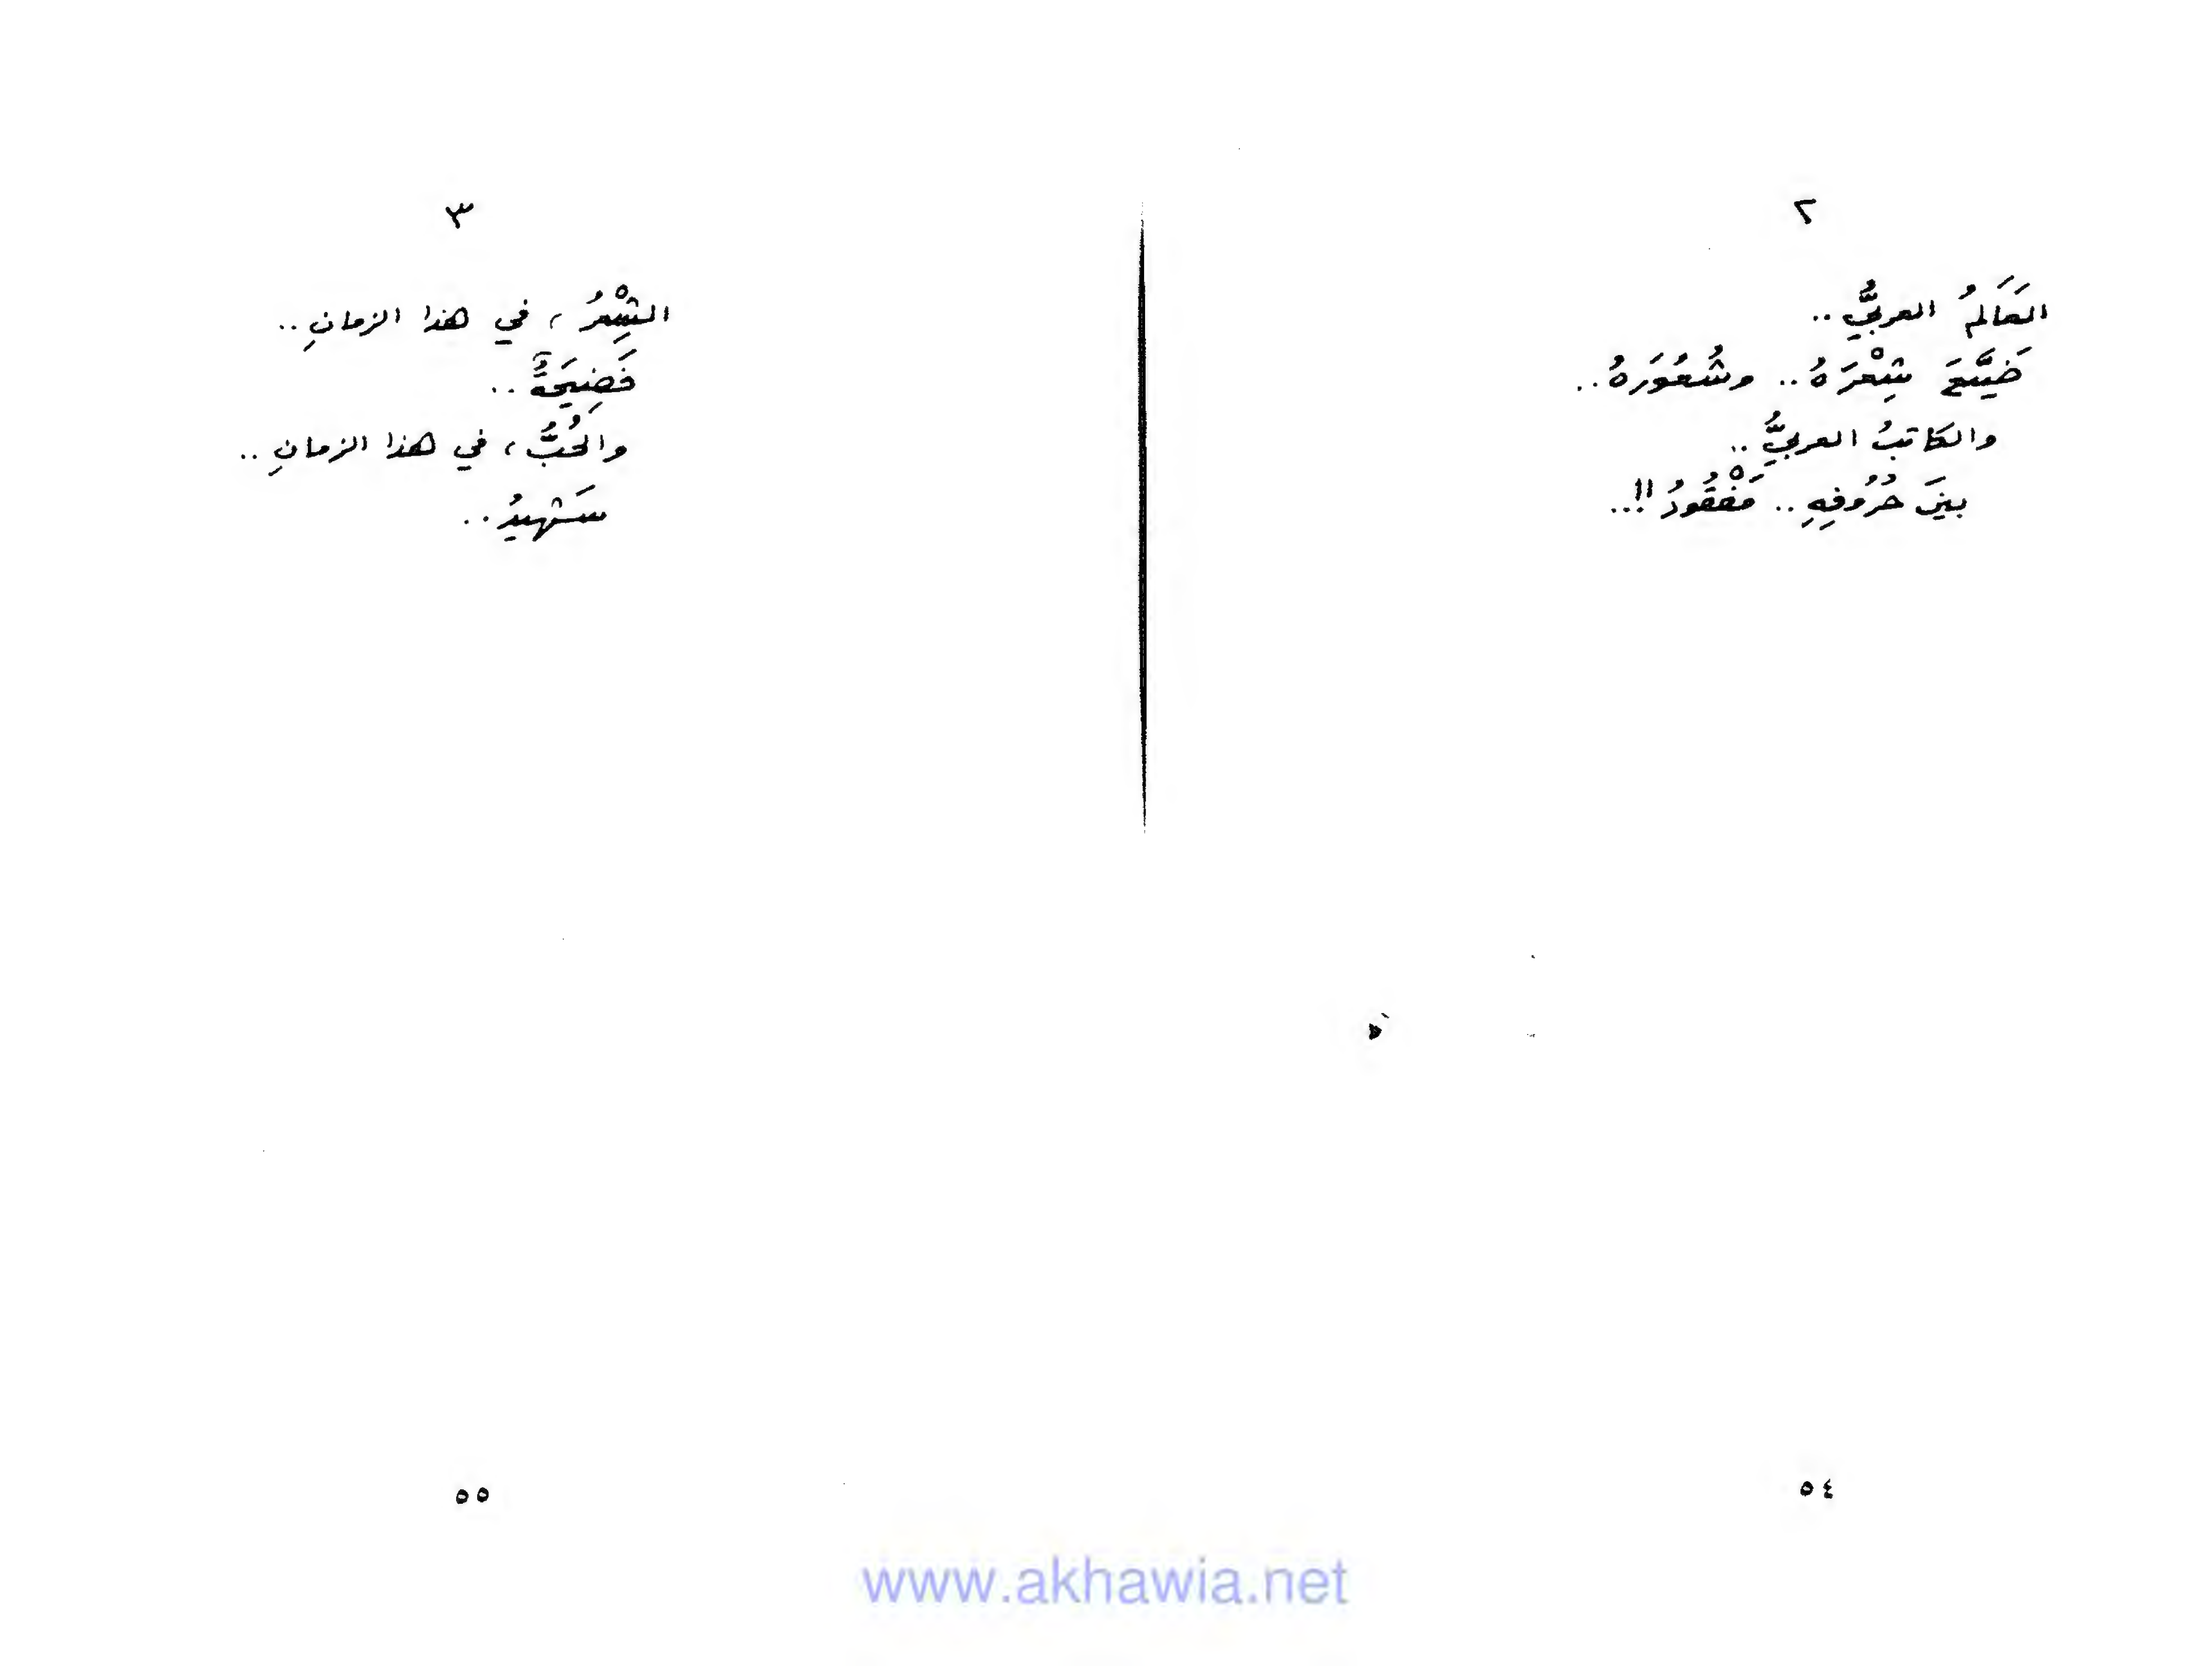 ٢
العَالَمُ العربيُّ ..
ضَيَّعَ شِعْرَهُ .. وشُعُورَهُ ..
والكاتبُ العربيُّ ..
بينَ حُرُوفِهِ .. مَفْقُودُ !! ..
٥٤
٣
الشِعْرُ ، في هذا الزمانِ ..
فَضِيحَةٌ ..
والحُبُّ ، في هذا الزمانِ ..
شَهِيدُ ..
٥٥
www.akhawia.net